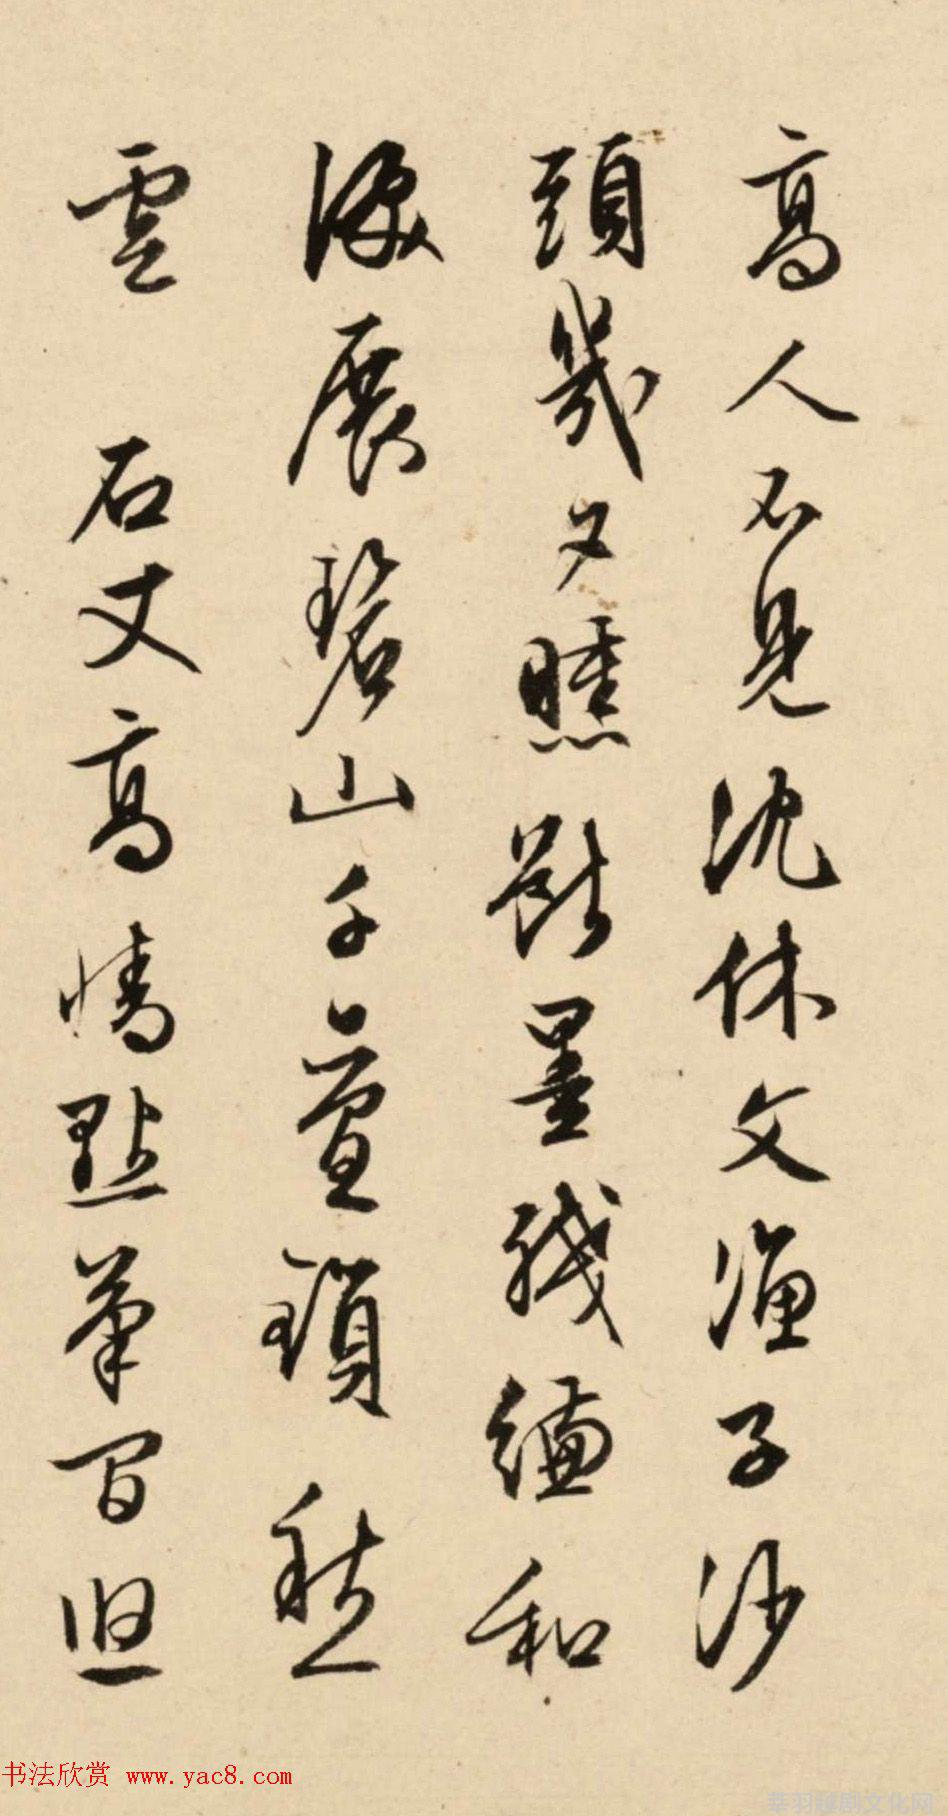 高人不見沈休文漁子沙
頭幾夕曛斷墨殘縑和
淚展碧山千疊鎖愁
雲 石丈高情點筆間
书法欣赏 www.yac8.com